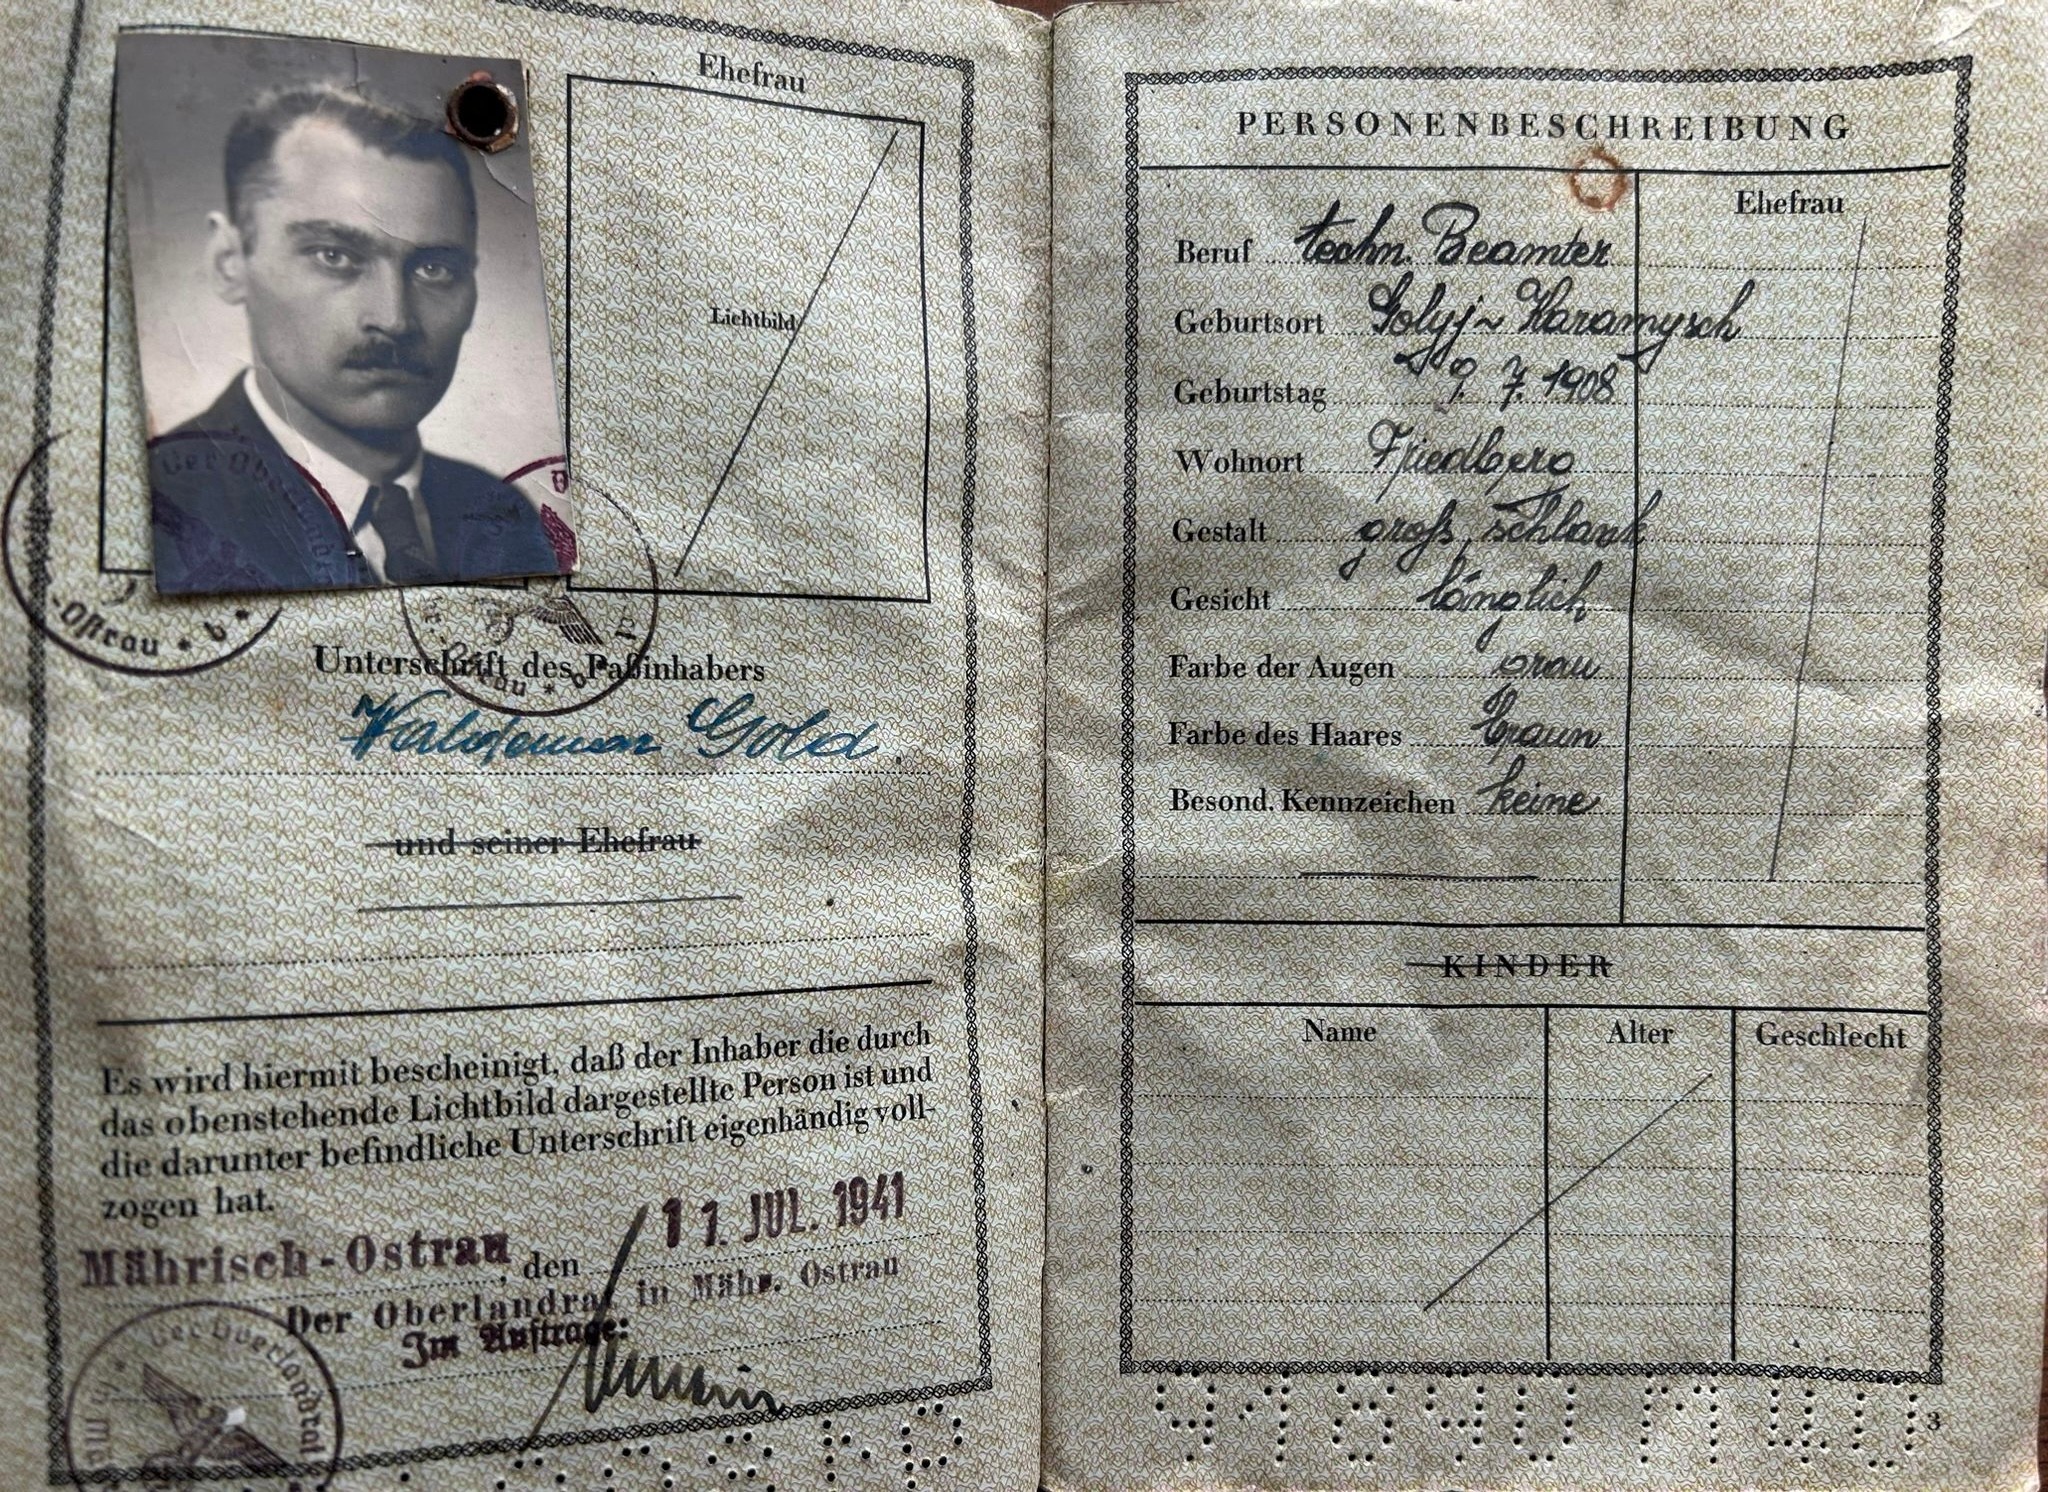 Ehefrau
Lichtbild
Der Oberlandrat
-Ostrau * b *
Unterschrift des Paßinhabers
Waldemar Gold
und seiner Ehefrau
Es wird hiermit bescheinigt, daß der Inhaber die durch
das obenstehende Lichtbild dargestellte Person ist und
die darunter befindliche Unterschrift eigenhändig voll-
zogen hat.
Mährisch-Ostrau, den 11. JUL. 1941
Der Oberlandrat in Mähr. Ostrau
Im Auftrage:
Der Oberlandrat
PERSONENBESCHREIBUNG
Ehefrau
Beruf techn. Beamter
Geburtsort Golyj-Karamysch
Geburtstag 9. 7. 1908
Wohnort Friedberg
Gestalt groß, schlank
Gesicht länglich
Farbe der Augen grau
Farbe des Haares braun
Besond. Kennzeichen keine
KINDER
Name Alter Geschlecht
3